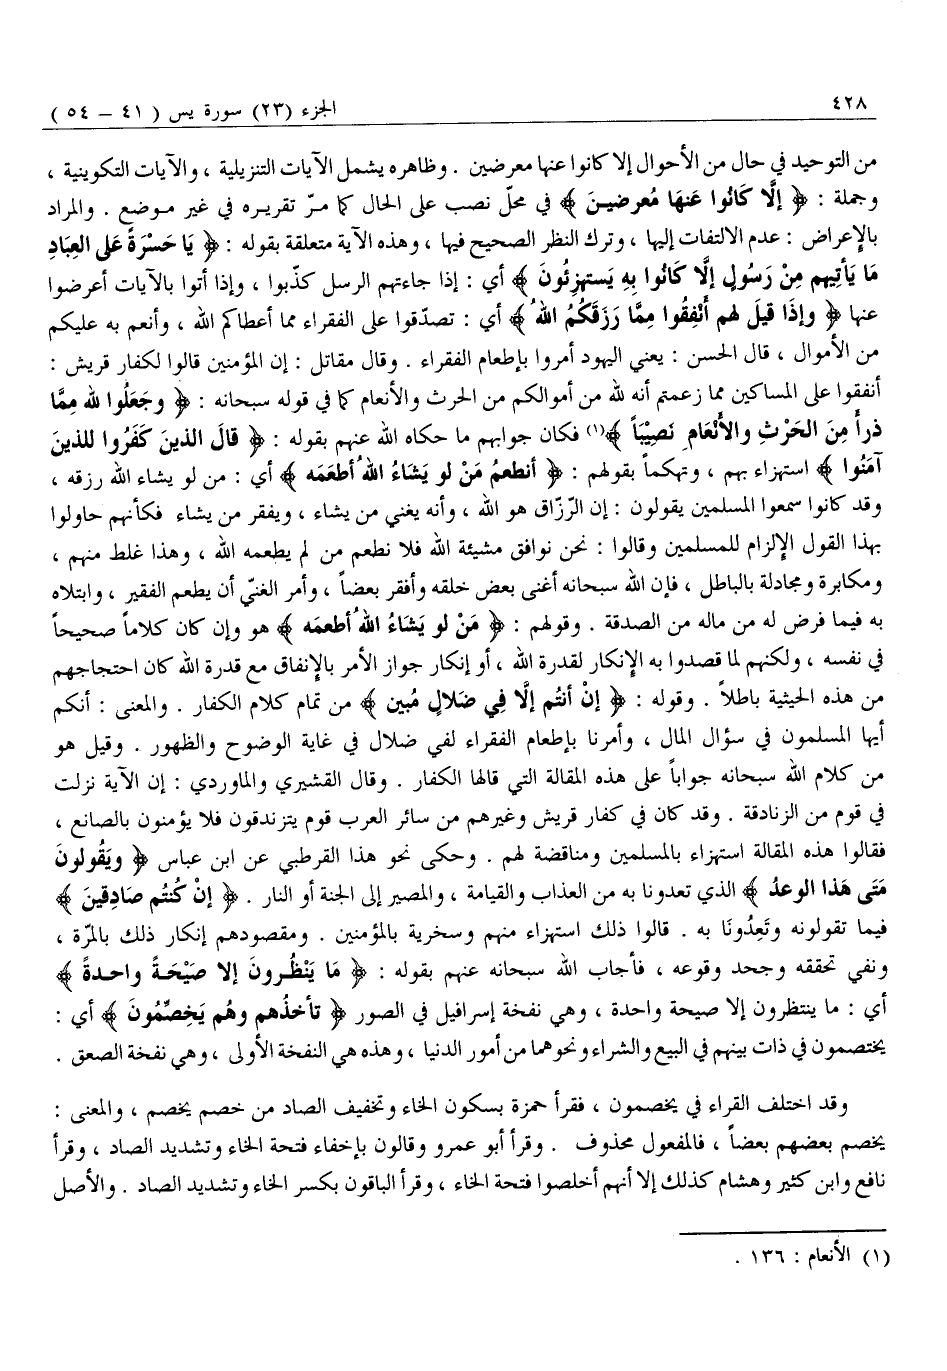 ٤٢٨
الجزء (٢٣) سورة يس ( ٤١ - ٥٤ )
من التوحيد في حال من الأحوال إلا كانوا عنها معرضين . وظاهره يشمل الآيات التنزيلية ، والآيات التكوينية ،
وجملة : ﴿ إلَّا كَانُوا عَنهَا مُعرضيـنَ ﴾ في محلّ نصب على الحال كما مـرّ تقريـره في غير مـوضع . والمراد
بالإعراض : عدم الالتفات إليها ، وترك النظر الصحيح فيها ، وهذه الآية متعلقة بقوله : ﴿ يَا حَسْرَةً عَلى العِبادِ
مَا يَأتيهم مِنْ رَسُولٍ إلَّا كَانُوا بِهِ يَستهزِئُونَ ﴾ أي : إذا جاءتهم الرسل كذّبوا ، وإذا أتوا بالآيات أعرضوا
عنها ﴿ وإذَا قيلَ لهم أَنْفِقُوا مِمَّا رَزَقَكُمُ اللهُ ﴾ أي : تصدّقوا على الفقراء مما أعطاكم الله ، وأنعم به عليكم
من الأموال ، قال الحسن : يعني اليهود أمروا بإطعام الفقراء . وقال مقاتل : إن المؤمنين قالوا لكفار قريش :
أنفقوا على المساكين مما زعمتم أنه لله من أموالكم من الحرث والأنعام كما في قوله سبحانه : ﴿ وجَعَلُوا لله مِمَّا
ذرأ مِنَ الحَرْثِ والأَنْعَامِ نَصِيْبَاً ﴾(١) فكان جوابهم ما حكاه الله عنهم بقوله : ﴿ قالَ الذينَ كَفَرُوا للذين
آمَنُوا ﴾ استهزاء بهم ، وتهكماً بقولهم : ﴿ أنطعمُ مَنْ لو يَشَاءُ اللهُ أطعَمَه ﴾ أي : من لو يشاء الله رزقه ،
وقد كانوا سمعوا المسلمين يقولون : إن الرّزاق هو الله ، وأنه يغني من يشاء ، ويفقر من يشاء فكأنهم حاولوا
بهذا القول الإلزام للمسلمين وقالوا : نحن نوافق مشيئة الله فلا نطعم من لم يطعمه الله ، وهذا غلط منهم ،
ومكابرة ومجادلة بالباطل ، فإن الله سبحانه أغنى بعض خلقه وأفقر بعضاً ، وأمر الغنيّ أن يطعم الفقير ، وابتلاه
به فيما فرض له من ماله من الصدقة . وقولهم : ﴿ مَنْ لو يَشَاءُ اللهُ أطعمَه ﴾ هو وإن كان كلاماً صحيحاً
في نفسه ، ولكنهم لما قصدوا به الإنكار لقدرة الله ، أو إنكار جواز الأمر بالإنفاق مع قدرة الله كان احتجاجهم
من هذه الحيثية باطلاً . وقوله : ﴿ إنْ أنتُم إلَّا فِي ضَلالٍ مُبين ﴾ من تمام كلام الكفار . والمعنى : أنكم
أيها المسلمون في سؤال المال ، وأمرنا بإطعام الفقراء لفي ضلال في غاية الوضوح والظهور . وقيل هو
من كلام الله سبحانه جواباً على هذه المقالة التي قالها الكفار . وقال القشيري والماوردي : إن الآية نزلت
في قوم من الزنادقة . وقد كان في كفار قريش وغيرهم من سائر العرب قوم يتزندقون فلا يؤمنون بالصانع ،
فقالوا هذه المقالة استهزاء بالمسلمين ومناقضة لهم . وحكى نحو هذا القرطبي عن ابن عباس ﴿ ويَقُولونَ
مَتَى هَذا الوعدُ ﴾ الذي تعدونا به من العذاب والقيامة ، والمصير إلى الجنة أو النار . ﴿ إنْ كُنتُم صَادِقينَ ﴾
فيما تقولونه وتَعِدُونَا به . قالوا ذلك استهزاء منهم وسخرية بالمؤمنين . ومقصودهم إنكار ذلك بالمرّة ،
ونفي تحققه وجحد وقوعه ، فأجاب الله سبحانه عنهم بقوله : ﴿ مَا يَنْظُـرونَ إلا صَيْحَـةً واحـدةً ﴾
أي : ما ينتظرون إلا صيحة واحدة ، وهي نفخة إسرافيل في الصور ﴿ تأخذُهم وهُم يَخِصِّمُونَ ﴾ أي :
يختصمون في ذات بينهم في البيع والشراء ونحوهما من أمور الدنيا ، وهذه هي النفخة الأولى ، وهي نفخة الصعق .
وقد اختلف القراء في يخصمون ، فقرأ حمزة بسكون الخاء وتخفيف الصاد من خصم يخصم ، والمعنى :
يخصم بعضهم بعضاً ، فالمفعول محذوف . وقرأ أبو عمرو وقالون بإخفاء فتحة الخاء وتشديد الصاد ، وقرأ
نافع وابن كثير وهشام كذلك إلا أنهم أخلصوا فتحة الخاء ، وقرأ الباقون بكسر الخاء وتشديد الصاد . والأصل
(١) الأنعام : ١٣٦ .